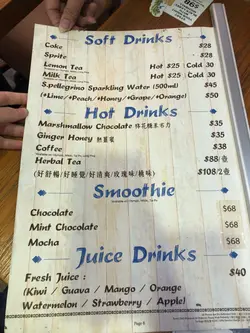 Soft Drinks
Coke $28
Sprite $28
Lemon Tea Hot $25 Cold 30
Milk Tea Hot $25 Cold 30
S.pellegrino Sparkling Water (500ml) $45
(+Lime/+Peach/+Honey/+Grape/+Orange) $50
Hot Drinks
Marshmallow Chocolate 棉花糖朱古力 $35
Ginger Honey 熱薑蜜 $35
Coffee $38
Herbal Tea $88/壺
(好舒暢/好睡覺/好清爽/玫瑰味/桃味) $108/2壺
Smoothie
Chocolate $68
Mint Chocolate $68
Mocha $68
Juice Drinks
Fresh Juice : $40
(Kiwi / Guava / Mango / Orange
Watermelon / Strawberry / Apple)